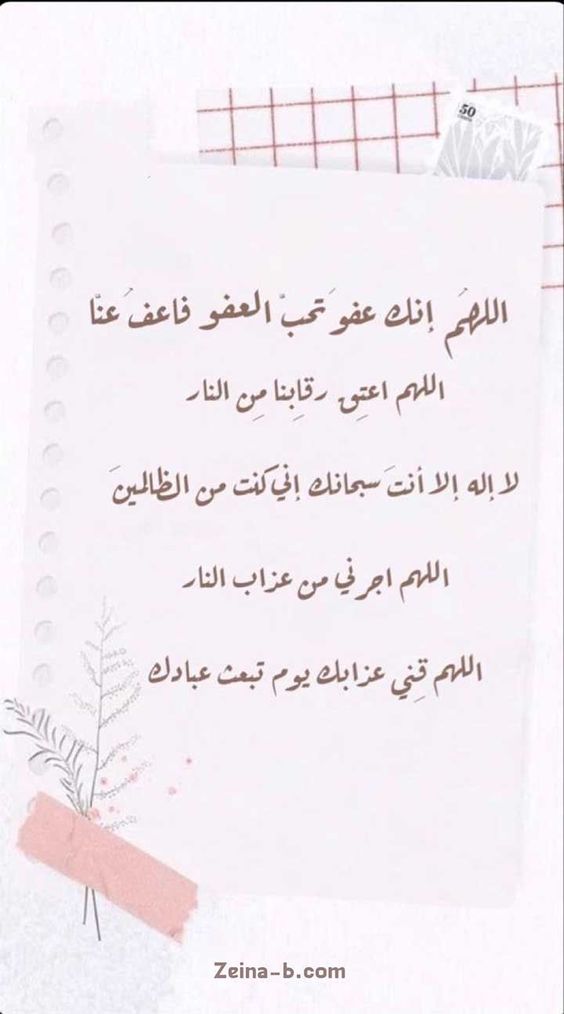 50
اللهُم إنك عفوَ تحبّ العفو فاعفُ عنّا
اللهم اعتِق رقابِنا مِن النار
لا إله إلا أنتَ سبحانك إني كنت من الظالمينَ
اللهم اجرني من عذاب النار
اللهم قِني عذابك يوم تبعث عبادك
Zeina-b.com